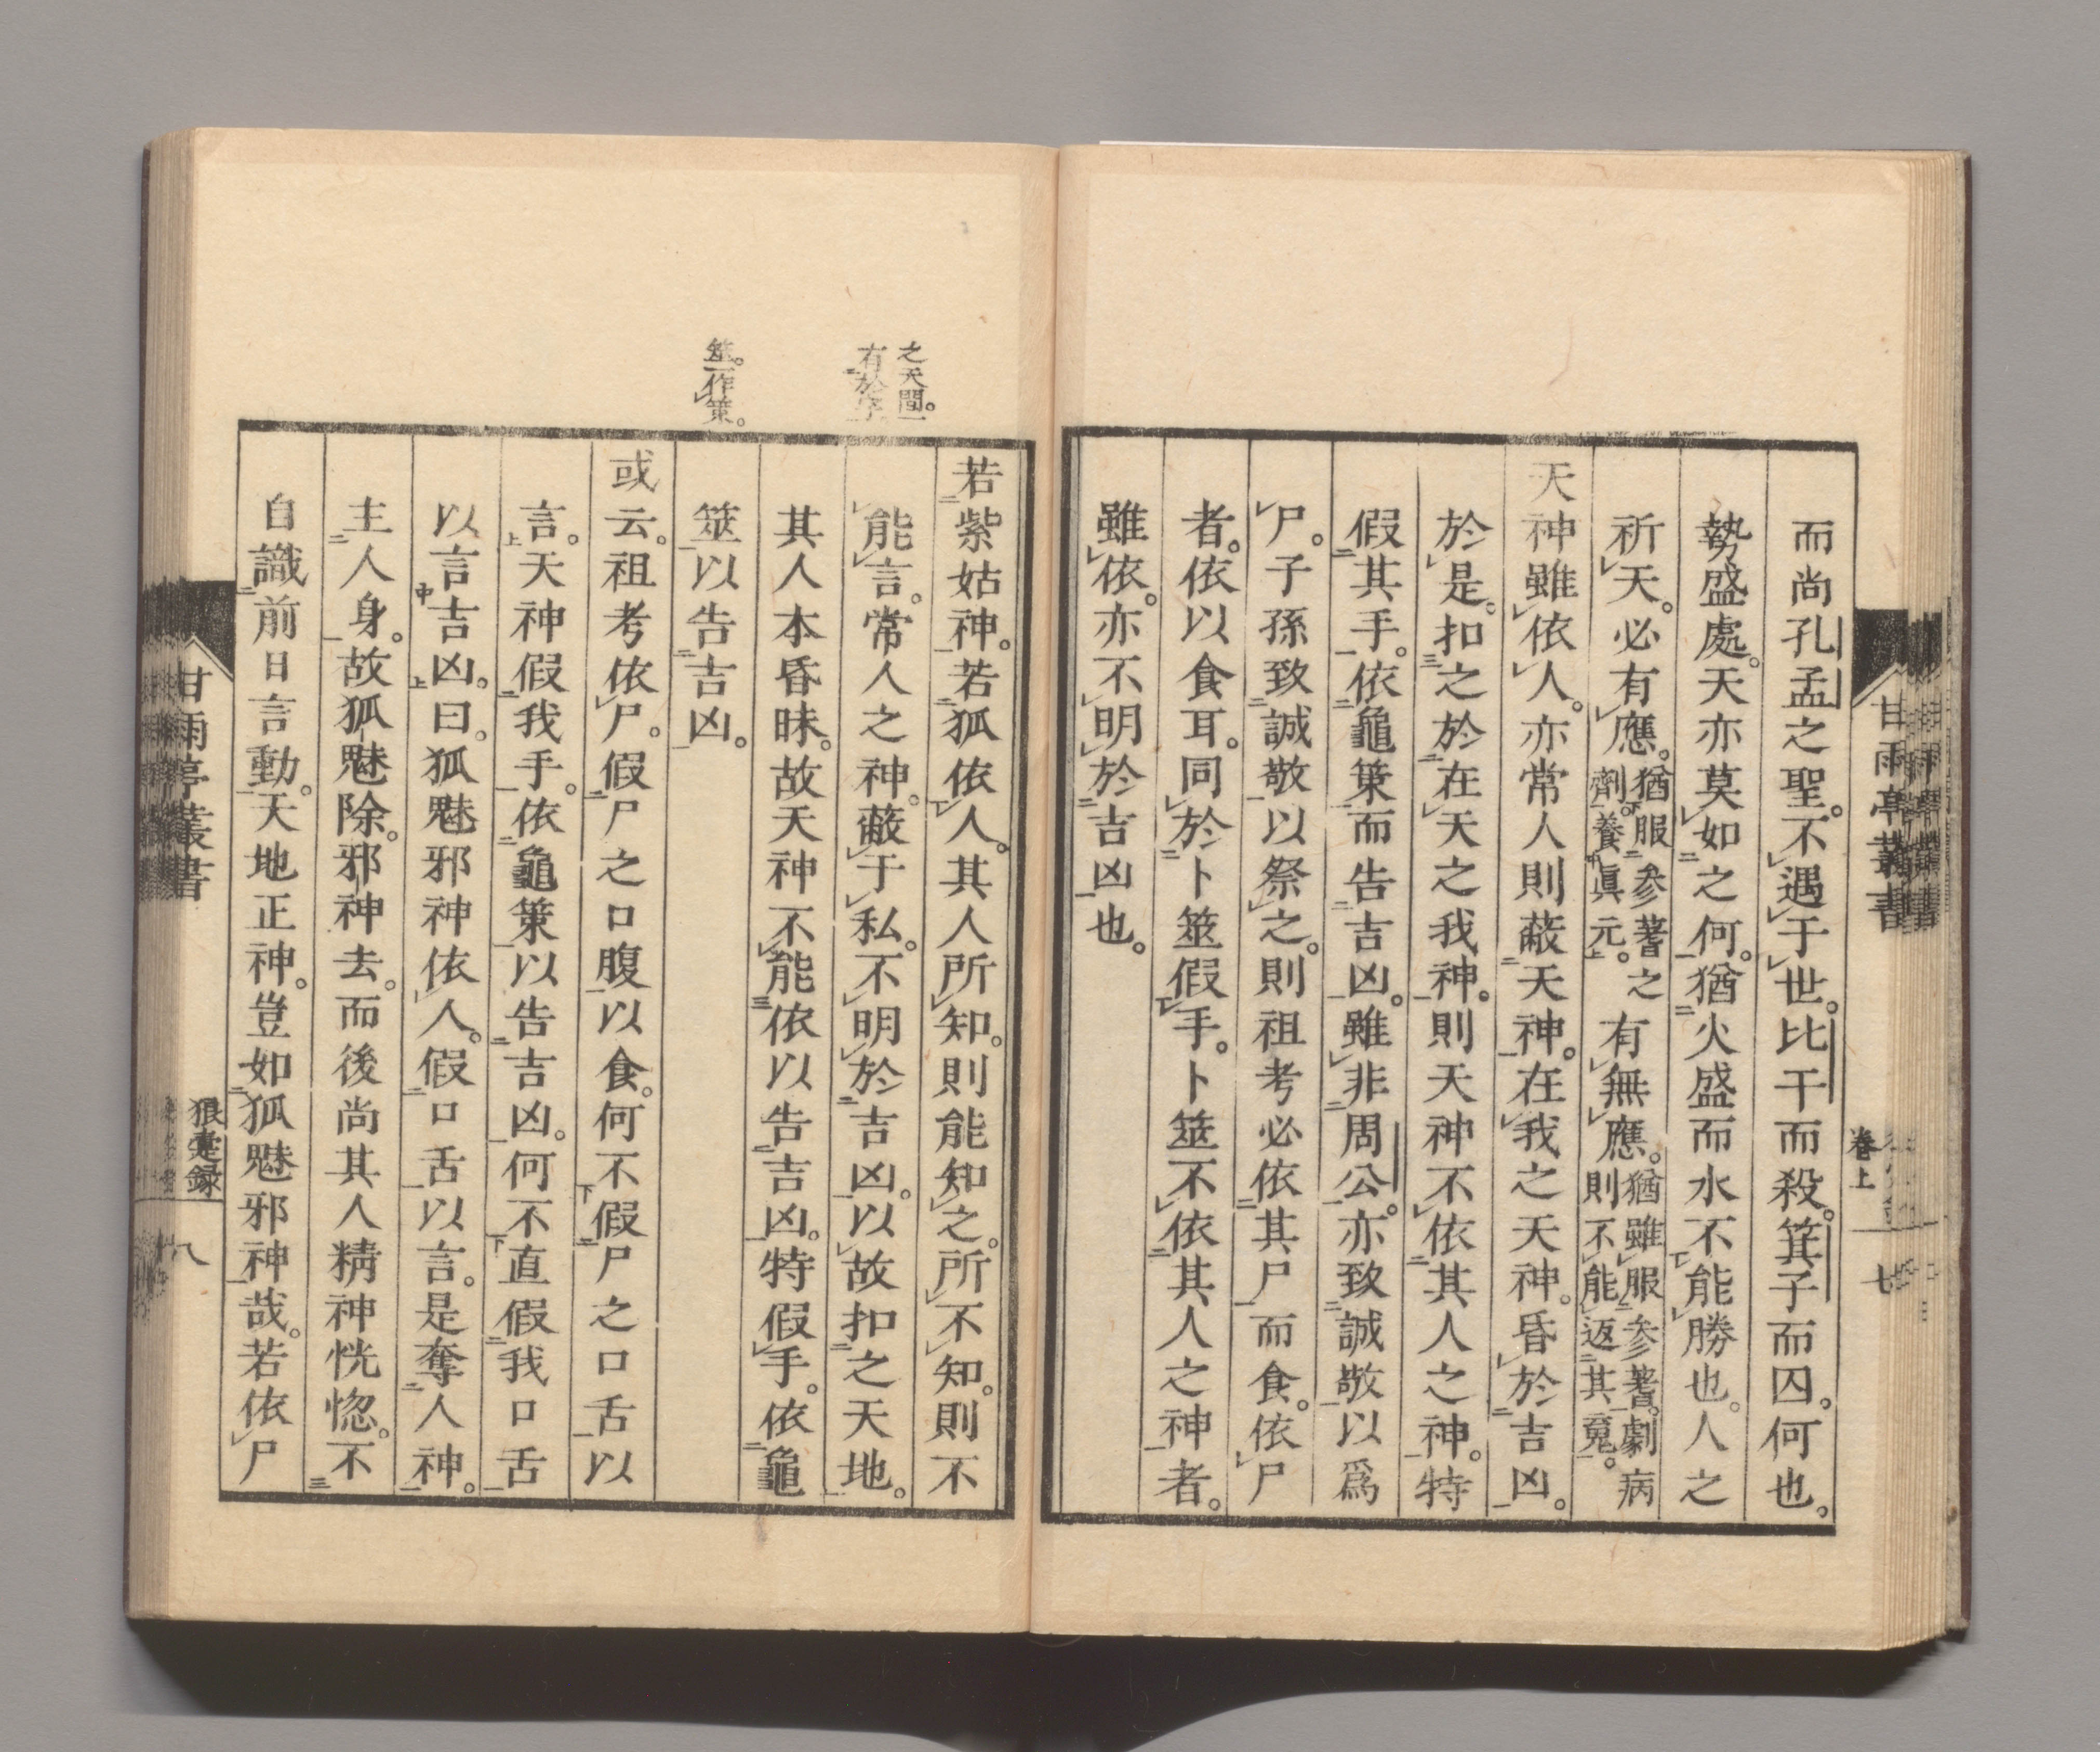 甘雨亭叢書
卷上
七
而尚孔孟之聖。不遇于世。比干而殺。箕子而囚。何也。
勢盛處。天亦莫如之何。猶火盛而水不能勝也。人之
祈天。必有應。猶服參蓍之劑。養眞元。有無應。猶雖服參蓍。劇病則不能返其寃。
天神雖依人。亦常人則蔽天神。在我之天神。昏於吉凶。
於是。扣之於在天之我神。則天神不依其人之神。特
假其手。依龜筴而告吉凶。雖非周公。亦致誠敬以爲
尸。子孫致誠敬以祭之。則祖考必依其尸而食。依尸
者。依以食耳。同於卜筮假手。卜筮不依其人之神者。
雖依。亦不明於吉凶也。
之天間。一
有於字
筮。一作策。
若紫姑神。若狐依人。其人所知。則能知之。所不知。則不
能言。常人之神。蔽于私。不明於吉凶。以故扣之天地。
其人本昏昧。故天神不能依以告吉凶。特假手。依龜
筮以告吉凶。
或云。祖考依尸。假尸之口腹以食。何不假尸之口舌以
言。天神假我手。依龜筴以告吉凶。何不直假我口舌
以言吉凶。曰。狐魅邪神依人。假口舌以言。是奪人神。
主人身。故狐魅除。邪神去。而後尚其人精神恍惚。不
自識前日言動。天地正神。豈如狐魅邪神哉。若依尸
甘雨亭叢書
狼疐録
八